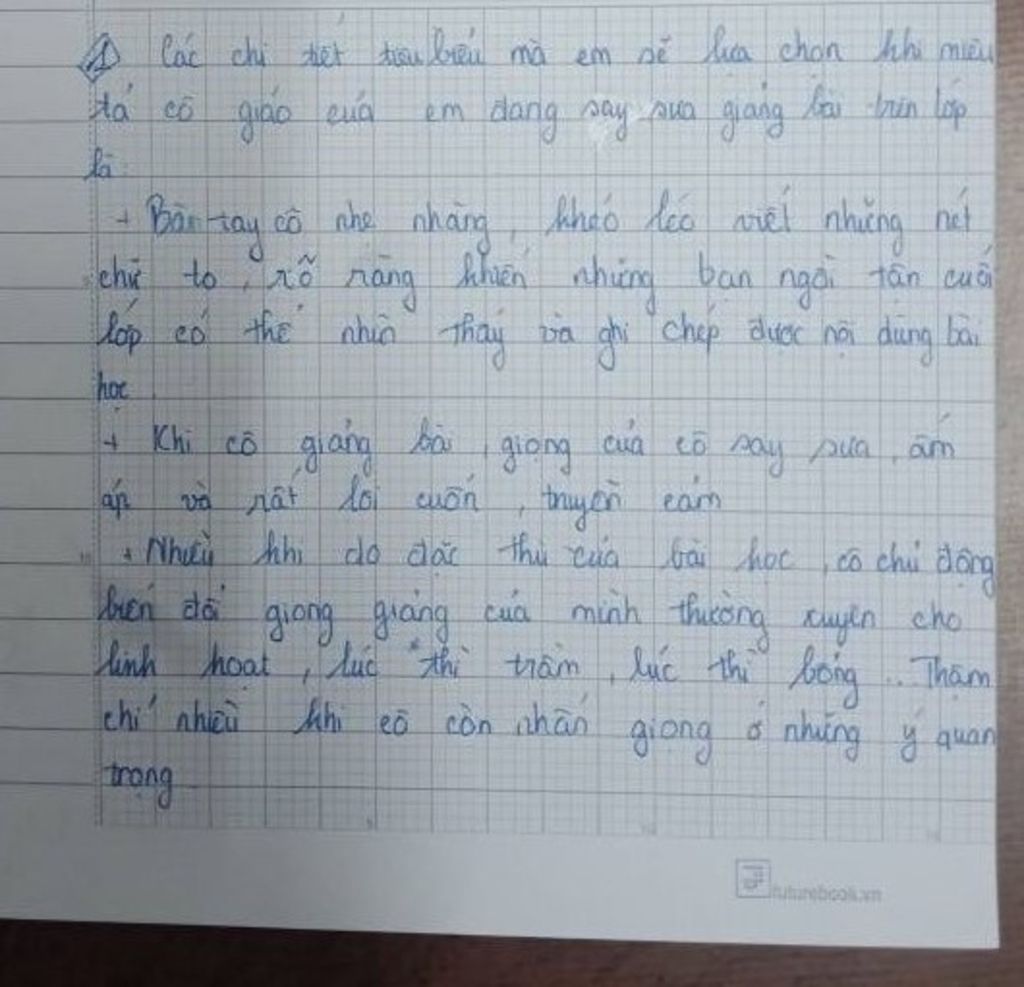 ① Các chi tiết tiêu biểu mà em sẽ lựa chọn khi miêu
tả cô giáo của em đang say sưa giảng bài trên lớp
là:
+ Bàn tay cô nhẹ nhàng, khéo léo viết những nét
chữ to, rõ ràng khiến những bạn ngồi tận cuối
lớp có thể nhìn thấy và ghi chép được nội dung bài
học.
+ Khi cô giảng bài, giọng của cô say sưa, ấm
áp và rất lôi cuốn, truyền cảm
+ Nhiều khi do đặc thù của bài học, cô chủ động
biến đổi giọng giảng của mình thường xuyên cho
linh hoạt, lúc thì trầm, lúc thì bổng.. Thậm
chí nhiều khi cô còn nhấn giọng ở những ý quan
trọng
futurebook.vn